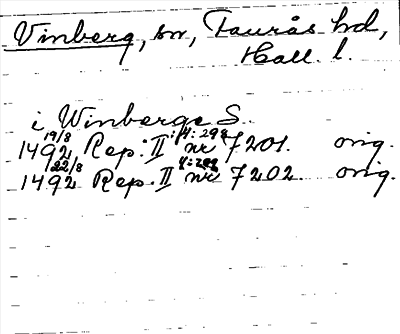 Vinberg, sn, Faurås hd,
Hall. l.
i Winberge S.
19/8 i:4:298
1492 Rep. II nr 7201. orig.
22/8 4:298
1492 Rep. II nr 7202. orig.